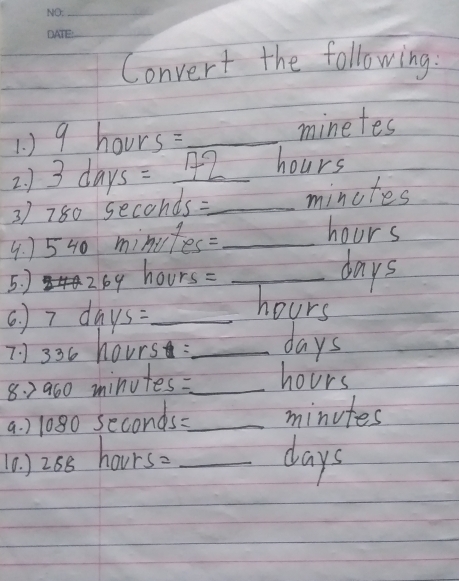 NO:
DATE:
Convert the following:
1.) 9 hours = ______ minetes
2.) 3 days = 72 hours
3) 780 seconds = ______ minutes
4.) 540 minutes = ______ hours
5.) 264 hours = ______ days
6.) 7 days = ______ hours
7.) 336 hours = ______ days
8.) 960 minutes = ______ hours
9.) 1080 seconds = ______ minutes
10.) 288 hours = ______ days